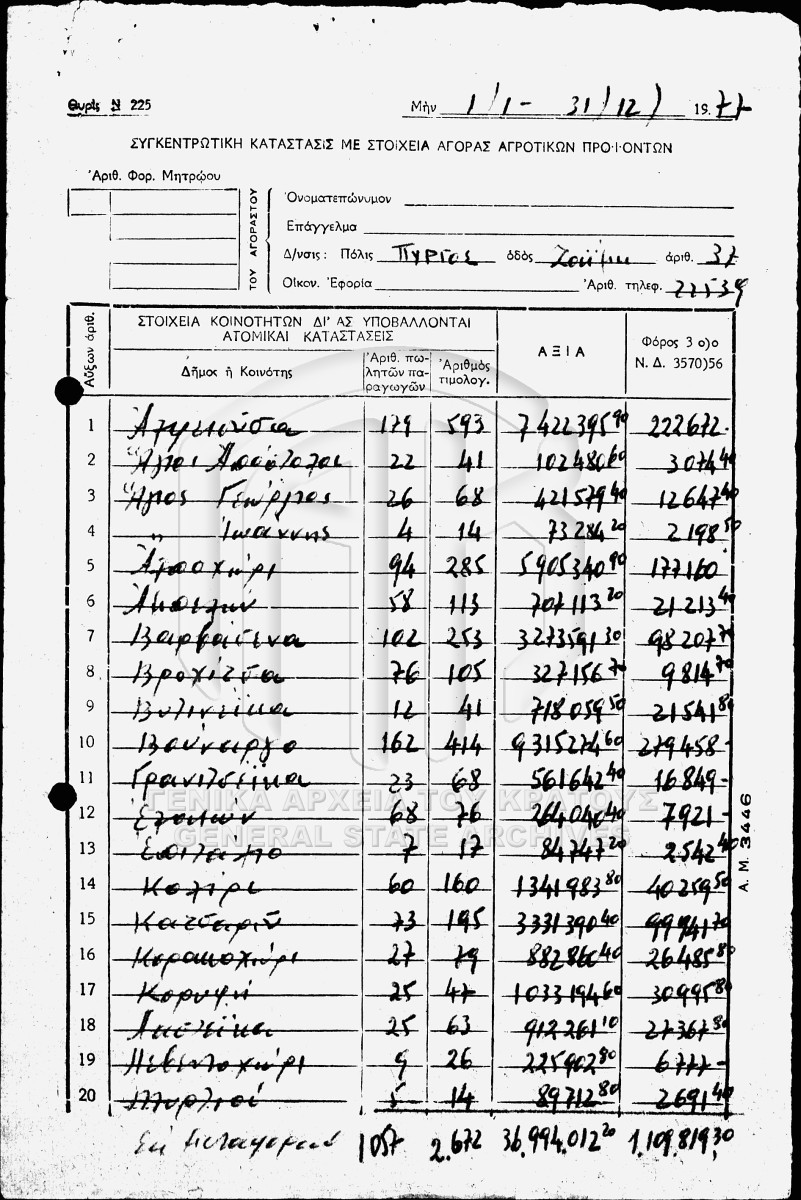 Θυρίς Ν 225
Μὴν 1/1 - 31/12/ 19.77
ΣΥΓΚΕΝΤΡΩΤΙΚΗ ΚΑΤΑΣΤΑΣΙΣ ΜΕ ΣΤΟΙΧΕΙΑ ΑΓΟΡΑΣ ΑΓΡΟΤΙΚΩΝ ΠΡΟ·Ι·ΟΝΤΩΝ
Ἀριθ. Φορ. Μητρῴου
ΤΟΥ ΑΓΟΡΑΣΤΟΥ
Ὀνοματεπώνυμον
Ἐπάγγελμα
Δ/νσις: Πόλις Πύργος ὁδὸς Ζαΐμη ἀριθ. 37
Οἰκον. Ἐφορία Ἀριθ. τηλεφ. 22539
Αὔξων ἀριθ.
ΣΤΟΙΧΕΙΑ ΚΟΙΝΟΤΗΤΩΝ ΔΙ' ΑΣ ΥΠΟΒΑΛΛΟΝΤΑΙ
ΑΤΟΜΙΚΑΙ ΚΑΤΑΣΤΑΣΕΙΣ
Δῆμος ἢ Κοινότης
Ἀριθ. πωλητῶν παραγωγῶν
Ἀριθμὸς τιμολογ.
ΑΞΙΑ
Φόρος 3 ο)ο
Ν. Δ. 3570)56
1 179 593 7422395 90 222672.-
2 Ἅγιοι Ἀπόστολοι 22 41 102480 60 3074 40
3 Ἅγιος Γεώργιος 26 68 421579 40 12647 40
4 " Ἰωάννης 4 14 73284 20 2198 50
5 94 285 5905340 90 177160
6 Ἀμπελών 58 113 707113 20 21213 40
7 Βαρβάσαινα 102 253 3273591 30 98207 70
8 Βροχίτσα 76 105 327156 70 9814 70
9 Βυτιναίικα 12 41 718059 50 21541 80
10 Βούναργο 162 414 9315274 60 279458-
11 Γρανιτσέικα 23 68 561642 40 16849-
12 Ἐλαιών 68 76 264040 40 7921-
13 Ἐπιτάλιο 7 17 84747 20 2542 40
14 Κολίρι 60 160 1341983 80 40259 50
15 Κατσαροῦ 73 195 3331390 40 99941 70
16 Κορακοχώρι 27 79 882860 40 26485 80
17 Κορυφή 25 47 1033194 60 30995 80
18 Λαστέικα 25 63 912261 10 27367 80
19 Λεβεντοχώρι 9 26 225902 80 6777-
20 5 14 89712 80 2691 40
Εἰς Μεταφοράν 1057 2.672 36.994.012 20 1.109.819,30
Α. Μ. 3446
ΓΕΝΙΚΑ ΑΡΧΕΙΑ ΤΟΥ ΚΡΑΤΟΥΣ
GENERAL STATE ARCHIVES